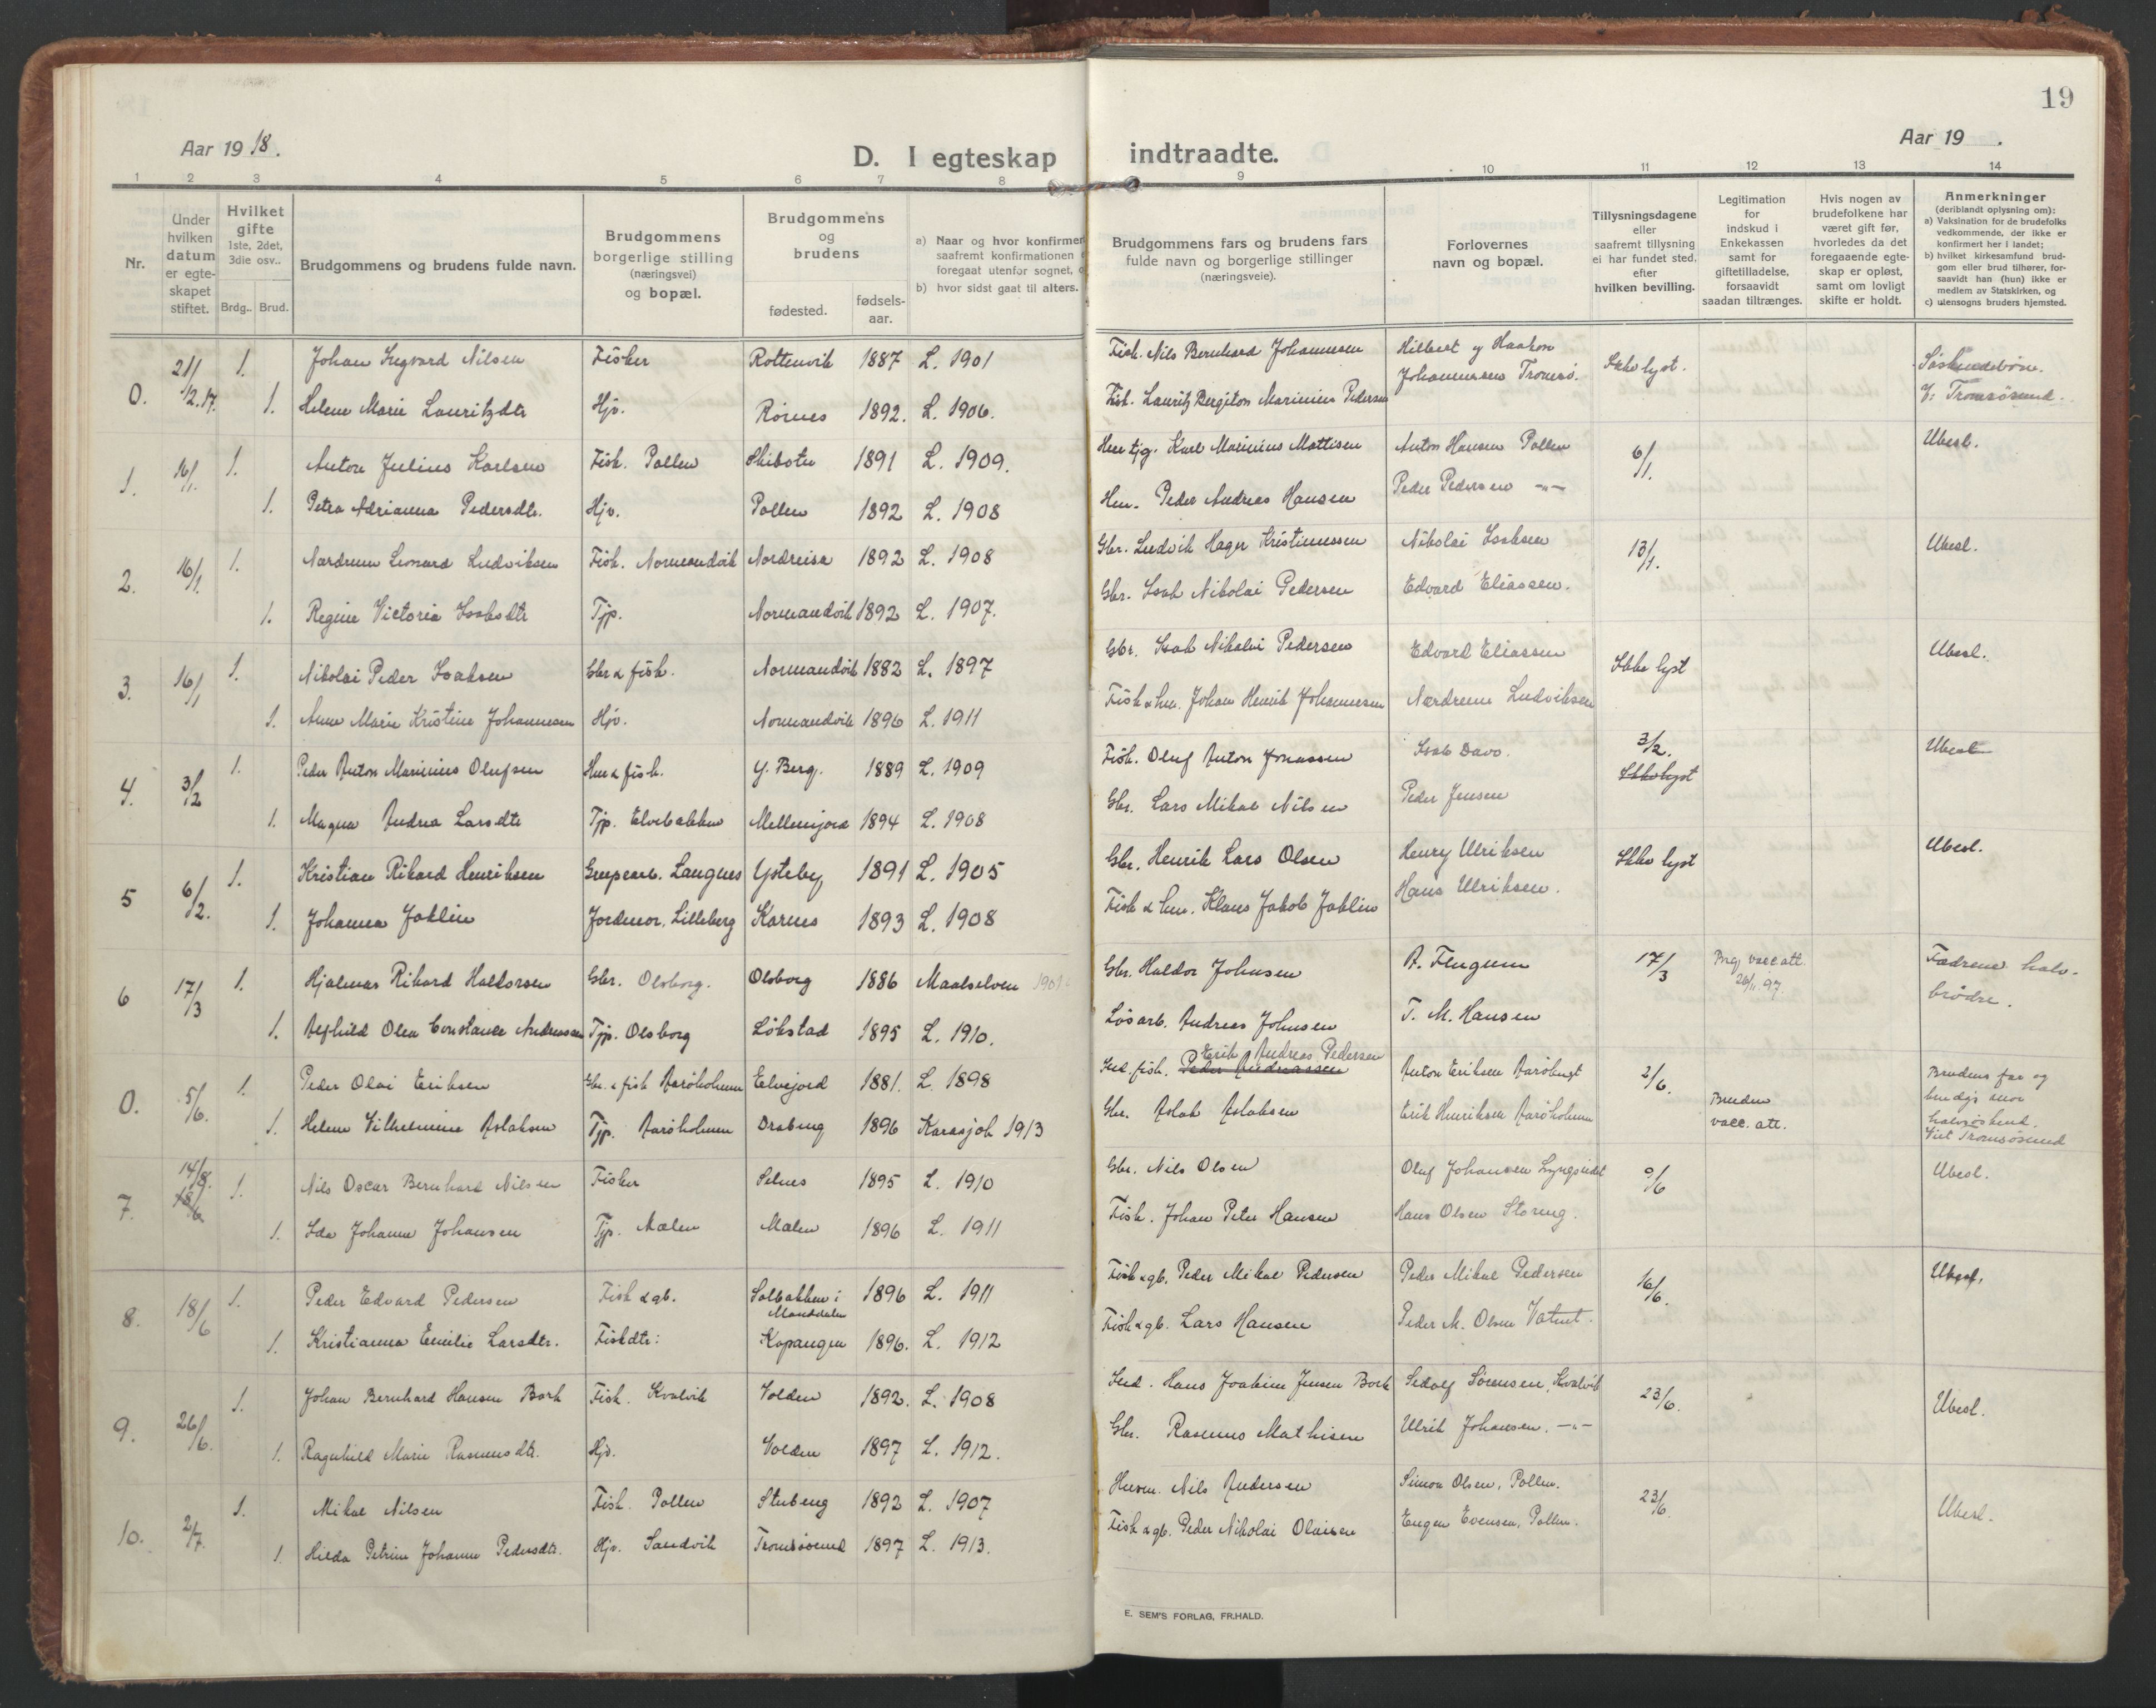 19
Aar 1918.
Aar 19 .
D. I egteskap indtraadte.
1 2 3 4 5 6 7 8 9 10 11 12 13 14
Nr.
Under hvilken datum er egte-skapet stiftet.
Hvilket gifte 1ste, 2det, 3die osv..
Brdg.. Brud.
Brudgommens og brudens fulde navn.
Brudgommens borgerlige stilling (næringsvei) og bopæl.
Brudgommens og brudens
fødested. fødsels-aar.
a) Naar og hvor konfirmer
saafremt konfirmationen
foregaat utenfor sognet,
b) hvor sidst gaat til alters.
Brudgommens fars og brudens fars
fulde navn og borgerlige stillinger
(næringsveie).
Forlovernes
navn og bopæl.
Tillysningsdagene
eller
saafremt tillysning
ei har fundet sted,
efter
hvilken bevilling.
Legitimation
for
indskud i
Enkekassen
samt for
giftetilladelse,
forsaavidt
saadan tiltrænges.
Hvis nogen av
brudefolkene har
været gift før,
hvorledes da det
foregaaende egte-
skap er opløst,
samt om lovligt
skifte er holdt.
Anmerkninger
(deriblandt oplysning om):
a) Vaksination for de brudefolks
vedkommende, der ikke er
konfirmert her i landet;
b) hvilket kirkesamfund brud-
gom eller brud tilhører, for-
saavidt han (hun) ikke er
medlem av Statskirken, og
c) utensogns bruders hjemsted.
0. 21/12.17. 1. Johan Ingvard Nilsen Fisker Rottenvik 1887 L. 1901 Fisk. Nils Bernhard Johannesen Hilbert og Haakon Johannessen Tromsø. Ikke lyst. Søskendebørn.
1. Helene Marie Lauritzdtr Hjv. Rørnes 1892. L. 1906. Fisk. Lauritz Bergiton Marinius Pedersen V: Tromsøsund.
1. 16/1. 1. Anton Julius Karlsen Fisk. Pollen Skibotn 1891 L. 1909. Karl Marinius Mattisen Anton Hansen Pollen 6/1. Ubesl.
1. Petra Adrianna Pedersdtr. Hjv. Pollen 1892 L. 1908 Hm. Peder Andreas Hansen Peder Pedersen -"-
2. 16/1. 1. Nardrum Leonard Ludviksen Fisk. Normandvik Nordreisa 1892 L. 1908 Gbr. Ludvik Hager Kristiansen Nikolai Isaksen 13/1. Ubesl.
1. Regine Victoria Isaksdtr Tjp. Normandvik 1892 L. 1907. Gbr. Isak Nikolai Pedersen Edvard Eliassen.
3. 16/1 1. Nikolai Peder Isaksen Gbr & fisk. Normandvik 1883 L. 1897 Gbr. Isak Nikolai Pedersen Edvard Eliassen Ikke lyst Ubesl.
1. Anne Marie Kristine Johannesen Hjv. Normandvik 1896 L. 1911 Fisk & hm. Johan Henrik Johannesen Ludviksen
4. 3/2 1. Peder Anton Marinius Olufsen Hm & fisk. Y. Berg. 1889 L. 1909 Fisk. Oluf Anton Jonassen 3/2. Ikke lyst Ubesl
1. Magna Andrea Larsdtr Tjp. Elvebakken Mellemjord 1894 L. 1908 Gbr. Lars Mikal Nilsen Peder Jensen
5 6/2. 1. Kristian Rikard Henriksen Langnes Ysteby 1891 L. 1905 Gbr. Henrik Lars Olsen Henry Ulriksen Ikke lyst Ubesl.
1. Johanna Joklin Jordmor. Lilleberg Karnes 1893 L. 1908 Fisk & hm. Klaus Jakob Joklin Hans Ulriksen.
6 17/3 1. Hjalmar Rikard Haldorsen Gbr. Olsborg. Olsborg 1886 Maalselven 1901 Gbr. Haldor Johnsen A. Flugum 17/3 vacc att. 26/11.97. Fædrene halv-brødre.
1. Olea Constance Andreassen Tjp. Olsborg Løkstad 1895 L. 1910. Løsarb. Andreas Johnsen T. M. Hansen
0. 5/6. 1. Peder Olai Eriksen Gbr. & fisk Aarøholmen Elvejord 1881. L. 1898 Ind. fisk. Peder Andreassen Erik Andreas Pedersen Anton Eriksen Aarøbugt 2/6. Brudens far og brudgs mor halvsøskend.
1. Helene Vilhelmine Aslaksen Tjp. Aarøholmen 1896 Karasjok 1913 Gbr. Aslak Aslaksen Erik Henriksen Aarøholmen Bruden vacc. att. Viet Tromsøsund
7. 14/8. 18/6 1. Nils Oscar Bernhard Nilsen Fisker Selnes 1895 L. 1910 Gbr. Nils Olsen Oluf Johansen Lyngseidet 9/6 Ubesl.
1. Ida Johanne Johansen Tjp. Malen 1896 L. 1911 Fisk. Johan Peter Hansen Hans Olsen Storeng.
8. 18/6 1. Peder Edvard Pedersen Fisk & gb. Solbakken i Manddalen 1896 L. 1911 Fisk & gb. Peder Mikal Pedersen Peder Mikal Pedersen 16/6. Ubesl.
1. Kristianna Emilie Larsdtr. Fiskdtr: Kopangen 1896. L. 1912 Fisk & gb. Lars Hansen Peder M. Olsen
9. 26/6. 1. Johan Bernhard Hansen Bork Fisk. Kvalvik Volden 1892. L. 1908 Ind. Hans Joakim Jensen Bork Sedolf Sørensen, Kvalvik 23/6. Ubesl.
1. Ragnhild Marie Rasmusdtr. Hjv. Volden 1897 L. 1912. Gbr. Rasmus Mathisen Ulrik Johansen. -"-
10. 2/7. 1. Mikal Nilsen Fisk. Pollen Stubeng 1892 L. 1907 Husm. Nils Andersen Simon Olsen, Pollen. 23/6 Ubesl.
1. Hilda Petrine Johanne Pedersdtr. Hjv. Sandvik Tromsøsund 1897 L. 1913. Fisk & gb. Peder Nikolai Olaisen Eugen Evensen, Pollen.
E. SEM'S FORLAG, FR.HALD.